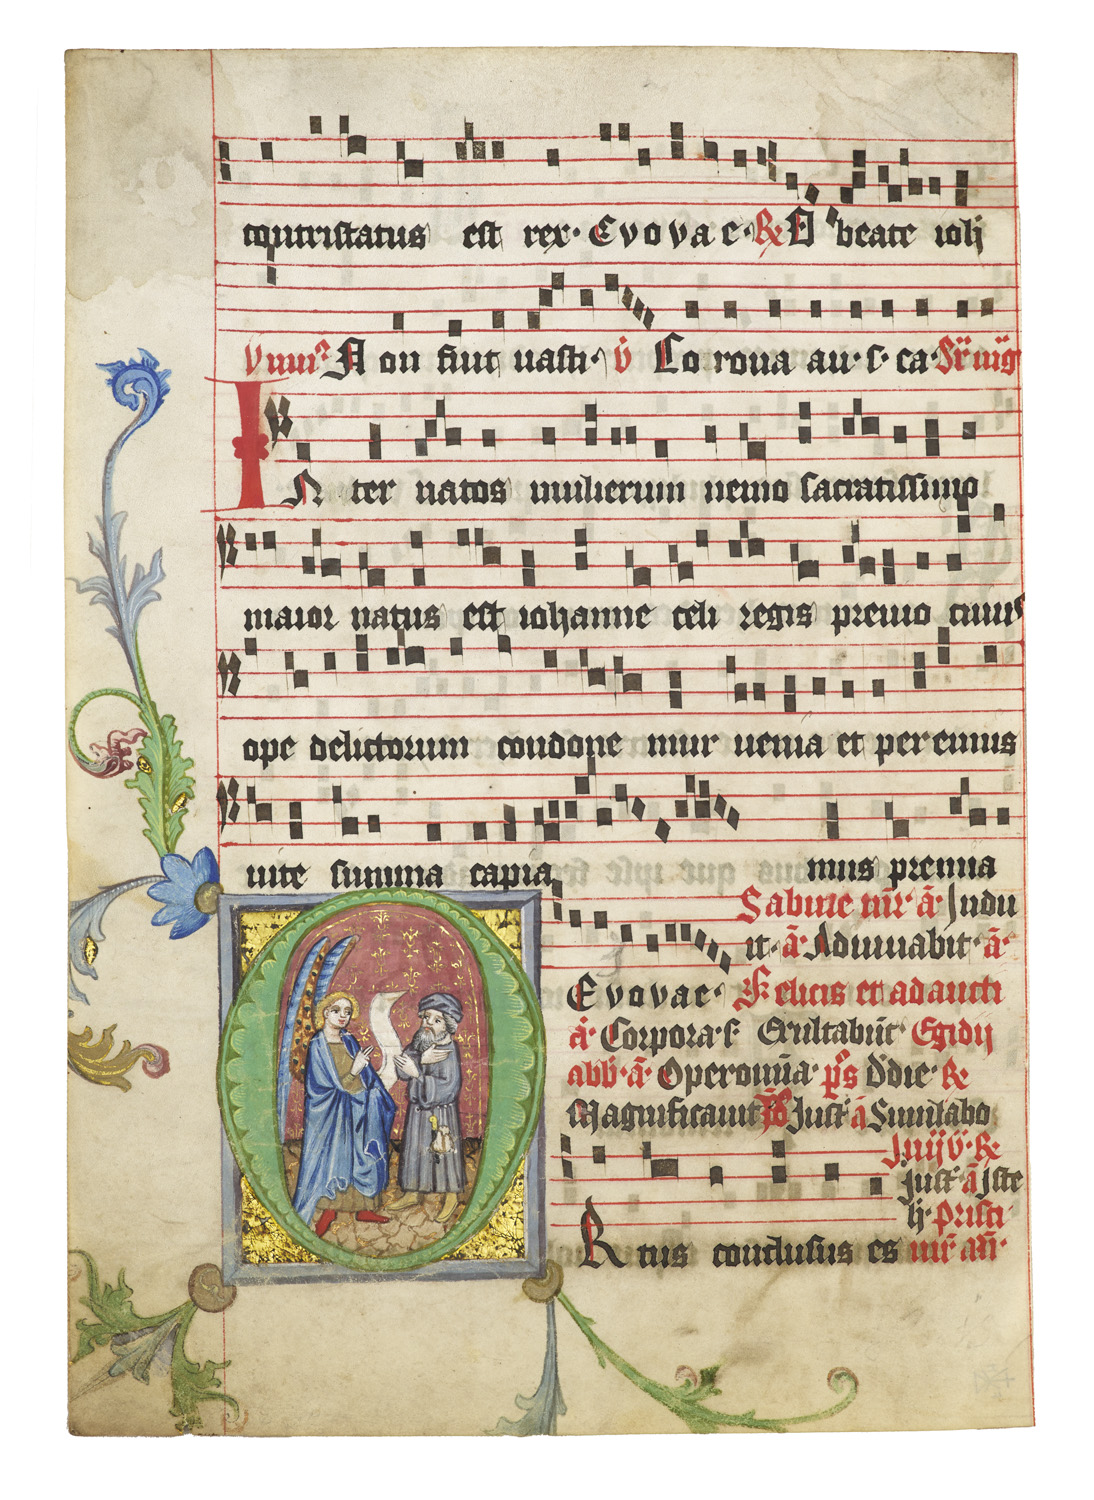 contristatus est rex· Evovae· R O beate ioh
Non fuit vasti· v̇ Corona au· s· ca·
INter natos mulierum nemo sacratissimo
maior natus est iohanne celi regis premio cuius
ope delictorum condone mur uenia et perennis
uite summa capia mus premia
Sabine mr̄· ā· Indu
it· ā· Adiuuabit· ā·
Evovae· Felicis et adaucti
ā· Corpora· s· Exultabūt· Egidij
abb· ā· Operoniīa· p̄s D'die· R
Magnificauit Just· ā Similabo
Just· ā Iste
h· Prisci
Rtus conclusus es mr̄ an̄·